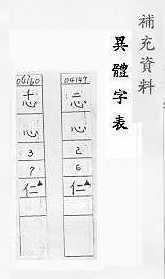 補充資料
異體字表
04147
心
2
6
仁▲
04160
忎
心
3
7
仁▲